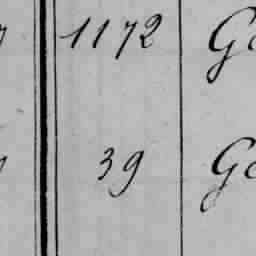 1172 Ge
39 Ge